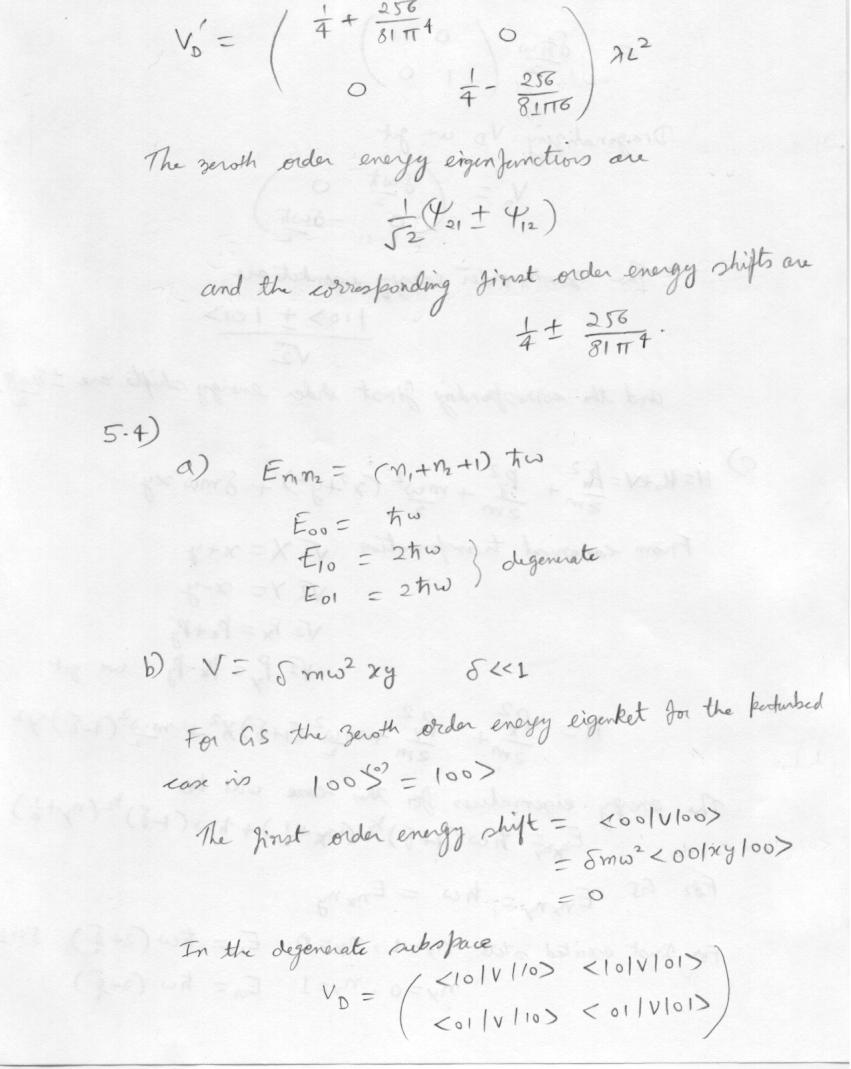 V_D' = ( 1/4 + 256/81π4   0
0   1/4 - 256/81π6 ) λL²
The zeroth order energy eigenfunctions are
1/√2 (Ψ21 ± Ψ12)
and the corresponding first order energy shifts are
1/4 ± 256/81π4.
5.4)
a) E_n1n2 = (n1+n2+1) ħω
E00 = ħω
E10 = 2ħω } degenerate
E01 = 2ħω
b) V = δmω² xy   δ<<1
For GS the zeroth order energy eigenket for the perturbed
case is |00>^(0) = |00>
The first order energy shift = <00|V|00>
= δmω² <00|xy|00>
= 0
In the degenerate subspace
V_D = ( <10|V|10> <10|V|01>
<01|V|10> <01|V|01> )